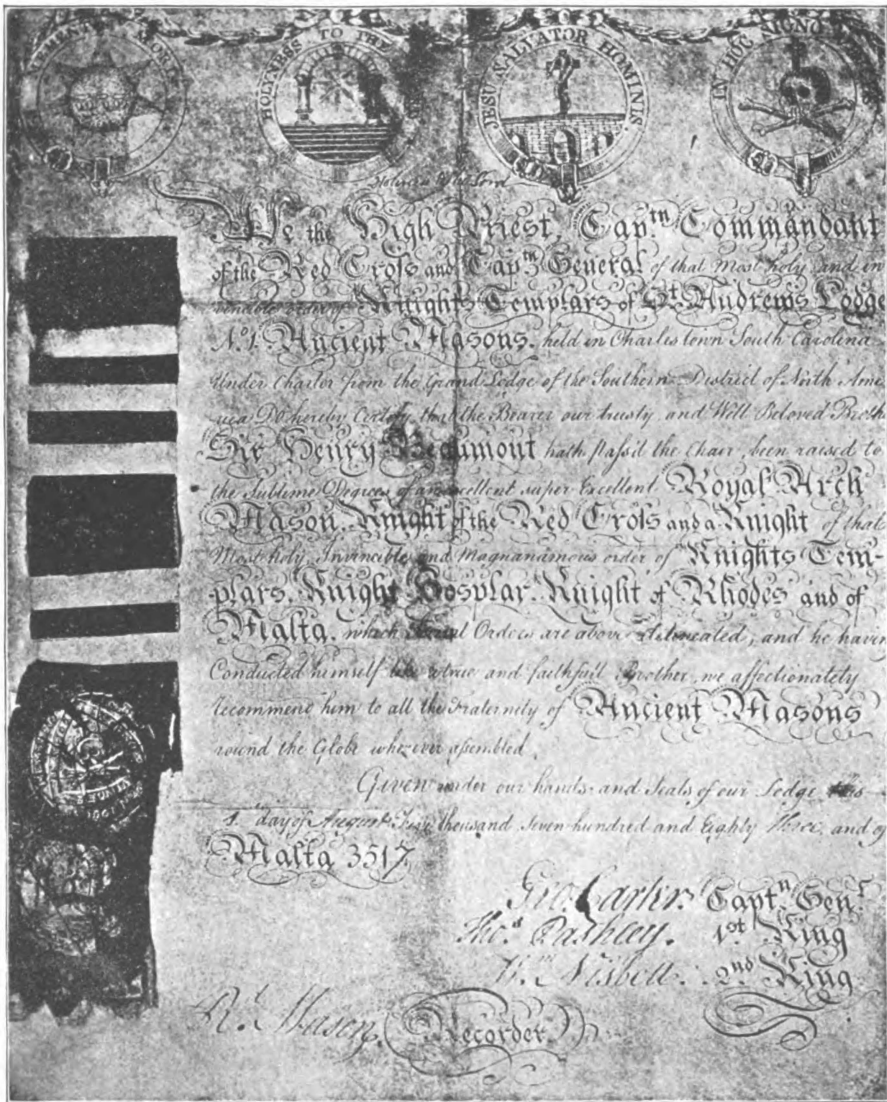 MEMENTO MORI
HOLYNESS TO THE
JESU SALVATOR HOMINIS.
IN HOC SIGNO
We the High Priest, Cap.tn Commandant
of the Red Cross and Cap.tn General of that Most holy and in
vincible order of Knights Templars of St. Andrews Lodge
No. 1. Ancient Masons. held in Charlestown South Carolina
Under Charter from the Grand Lodge of the Southern District of North Ame
rica Do hereby Certify that the Bearer our trusty and Well Beloved Broth
Sir Henry Beaumont hath pass'd the Chair, been raised to
the Sublime Degrees of an excellent super Excellent Royal Arch
Mason. Knight of the Red Cross and a Knight of that
Most holy, Invincible and Magnanimous order of Knights Tem-
plars. Knight Hosplar. Knight of Rhodes and of
Malta. which Orders are above delineated, and he having
Conducted himself like a true and faithfull Brother, we affectionately
recommend him to all the Fraternity of Ancient Masons
round the Globe wherever assembled
Given under our hands and Seals of our Lodge this
1st day of August thousand seven hundred and Eighty three, and of
Malta 3517
Geo. Carter. Capt.n Gen.l
Tho.s Pashley. 1st King
W.m Nisbett. 2nd King
R.d Mason. Recorder